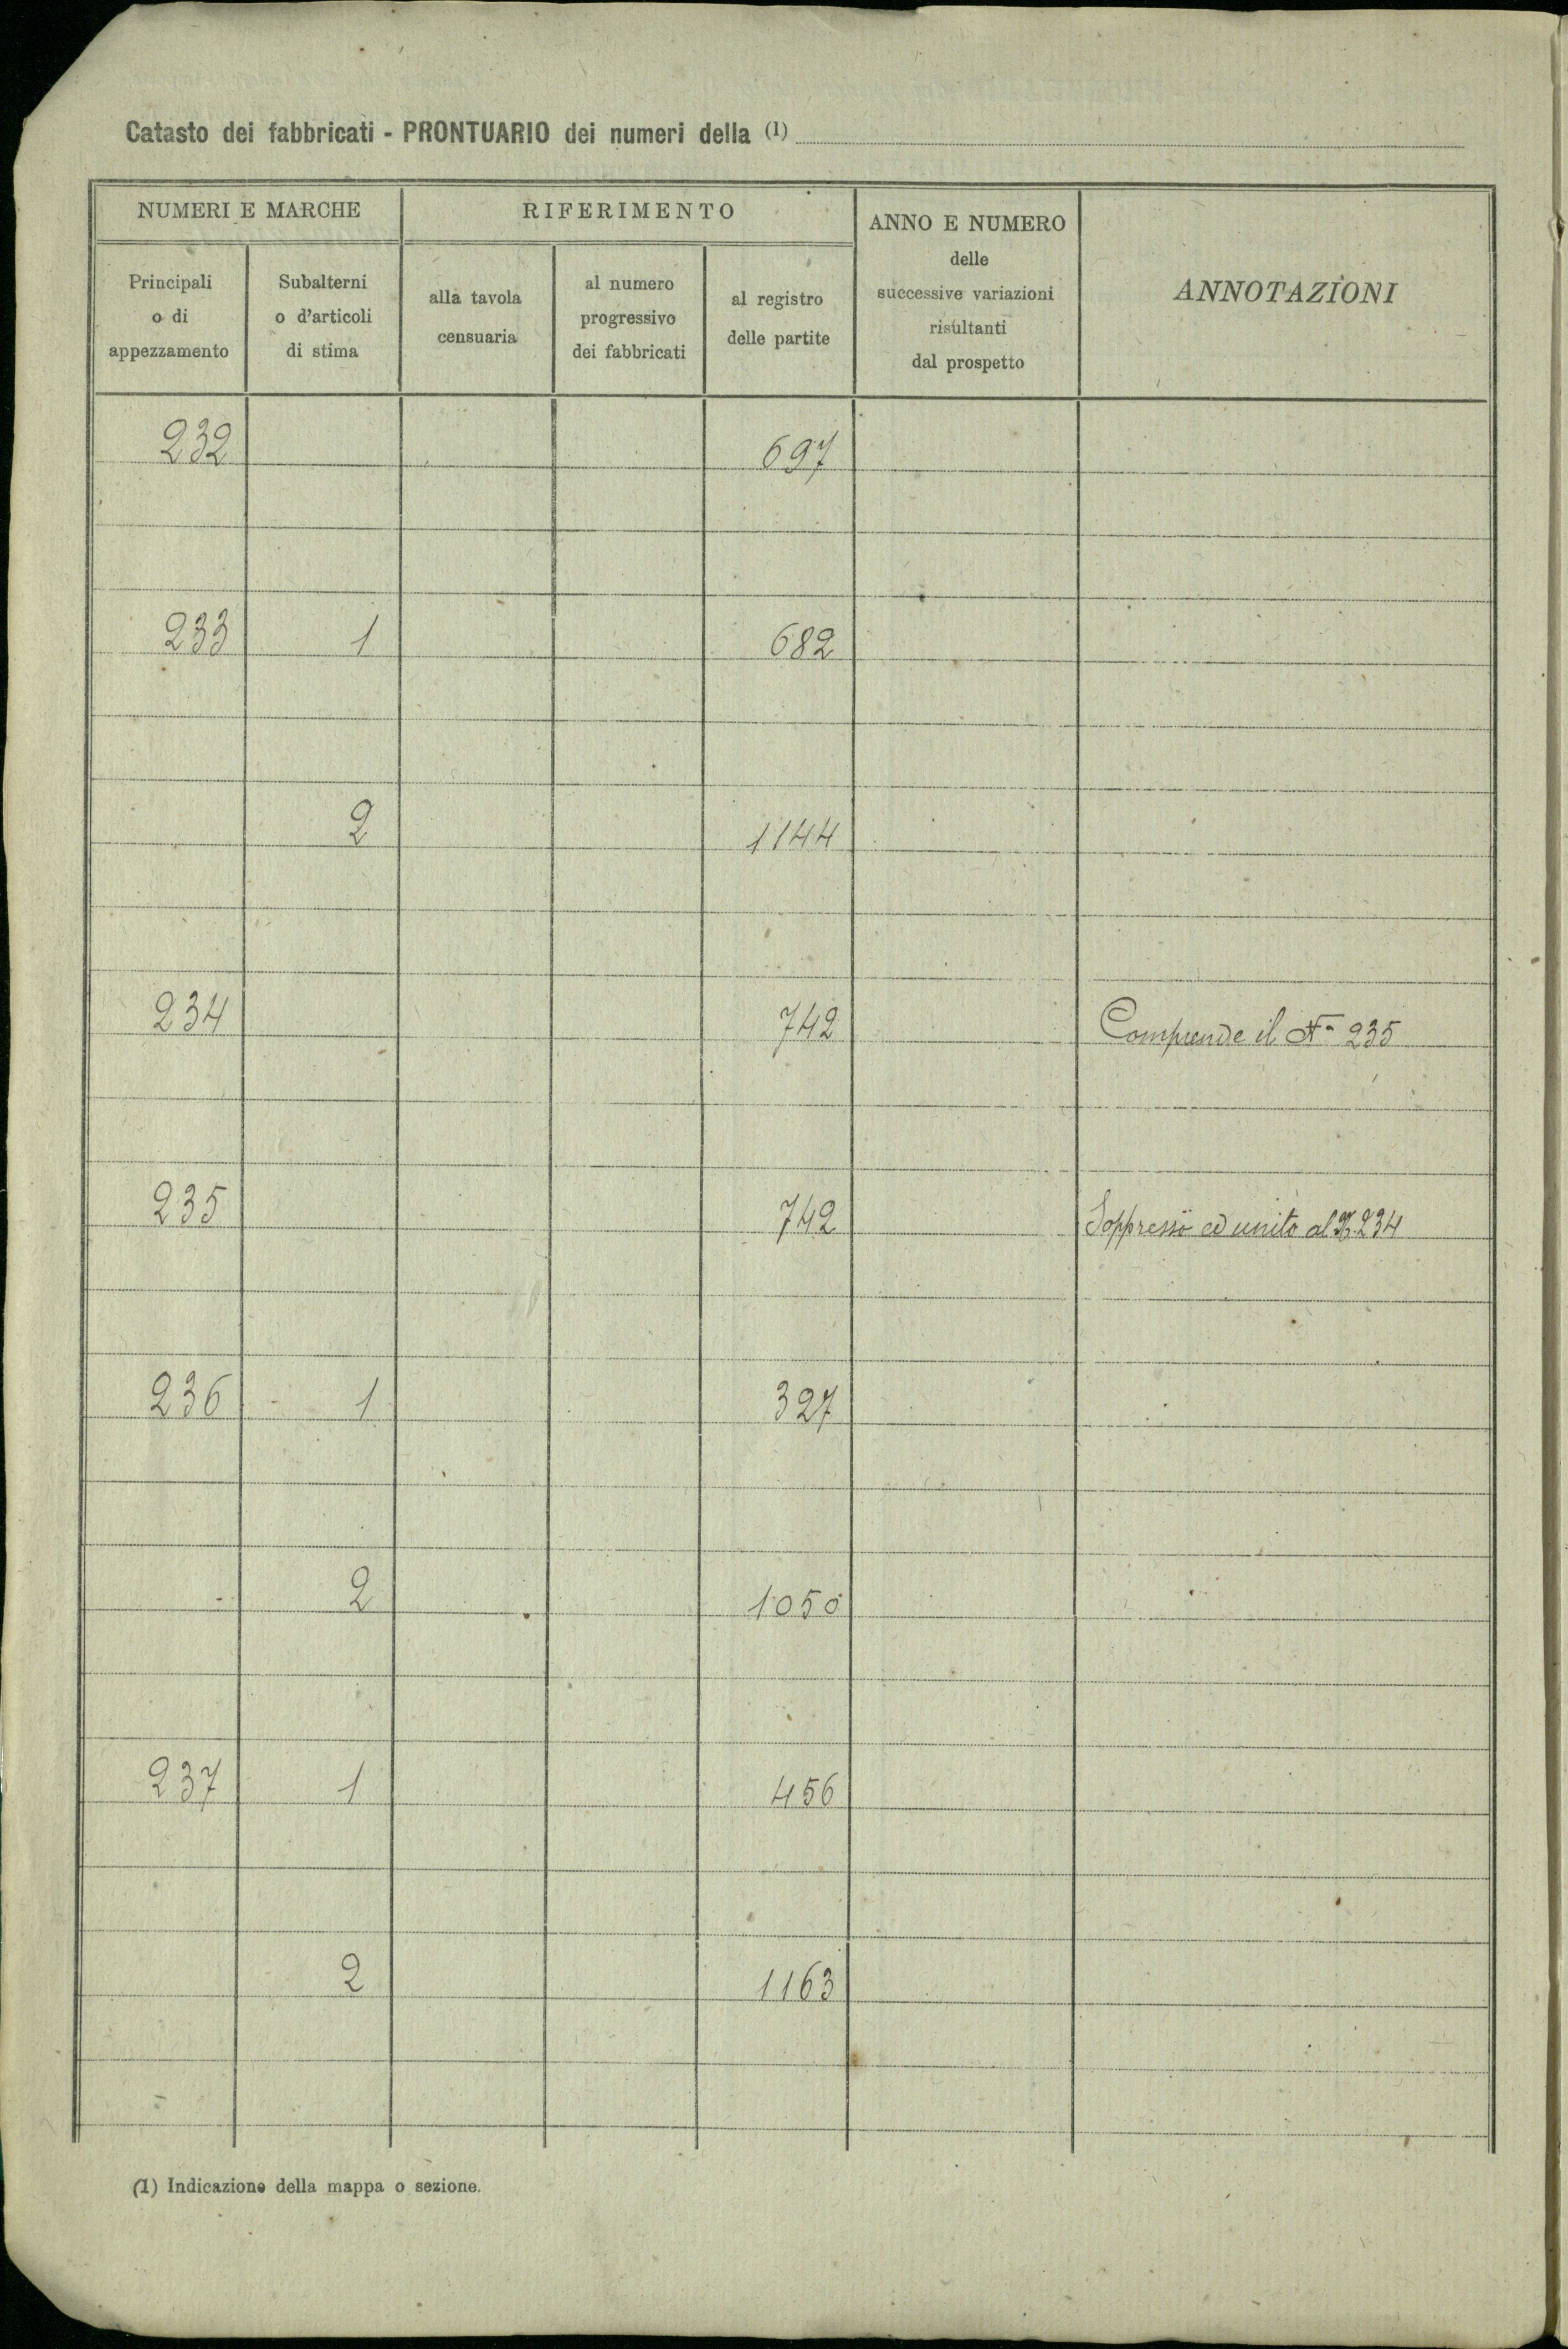 Catasto dei fabbricati - PRONTUARIO dei numeri della (1)
NUMERI E MARCHE
RIFERIMENTO
ANNO E NUMERO
delle
successive variazioni
risultanti
dal prospetto
ANNOTAZIONI
Principali
o di
appezzamento
Subalterni
o d'articoli
di stima
alla tavola
censuaria
al numero
progressivo
dei fabbricati
al registro
delle partite
232 697
233 1 682
2 1144
234 742 Comprende il N° 235
235 742 Soppresso ed unito al N. 234
236 1 327
2 1050
237 1 456
2 1163
(1) Indicazione della mappa o sezione.